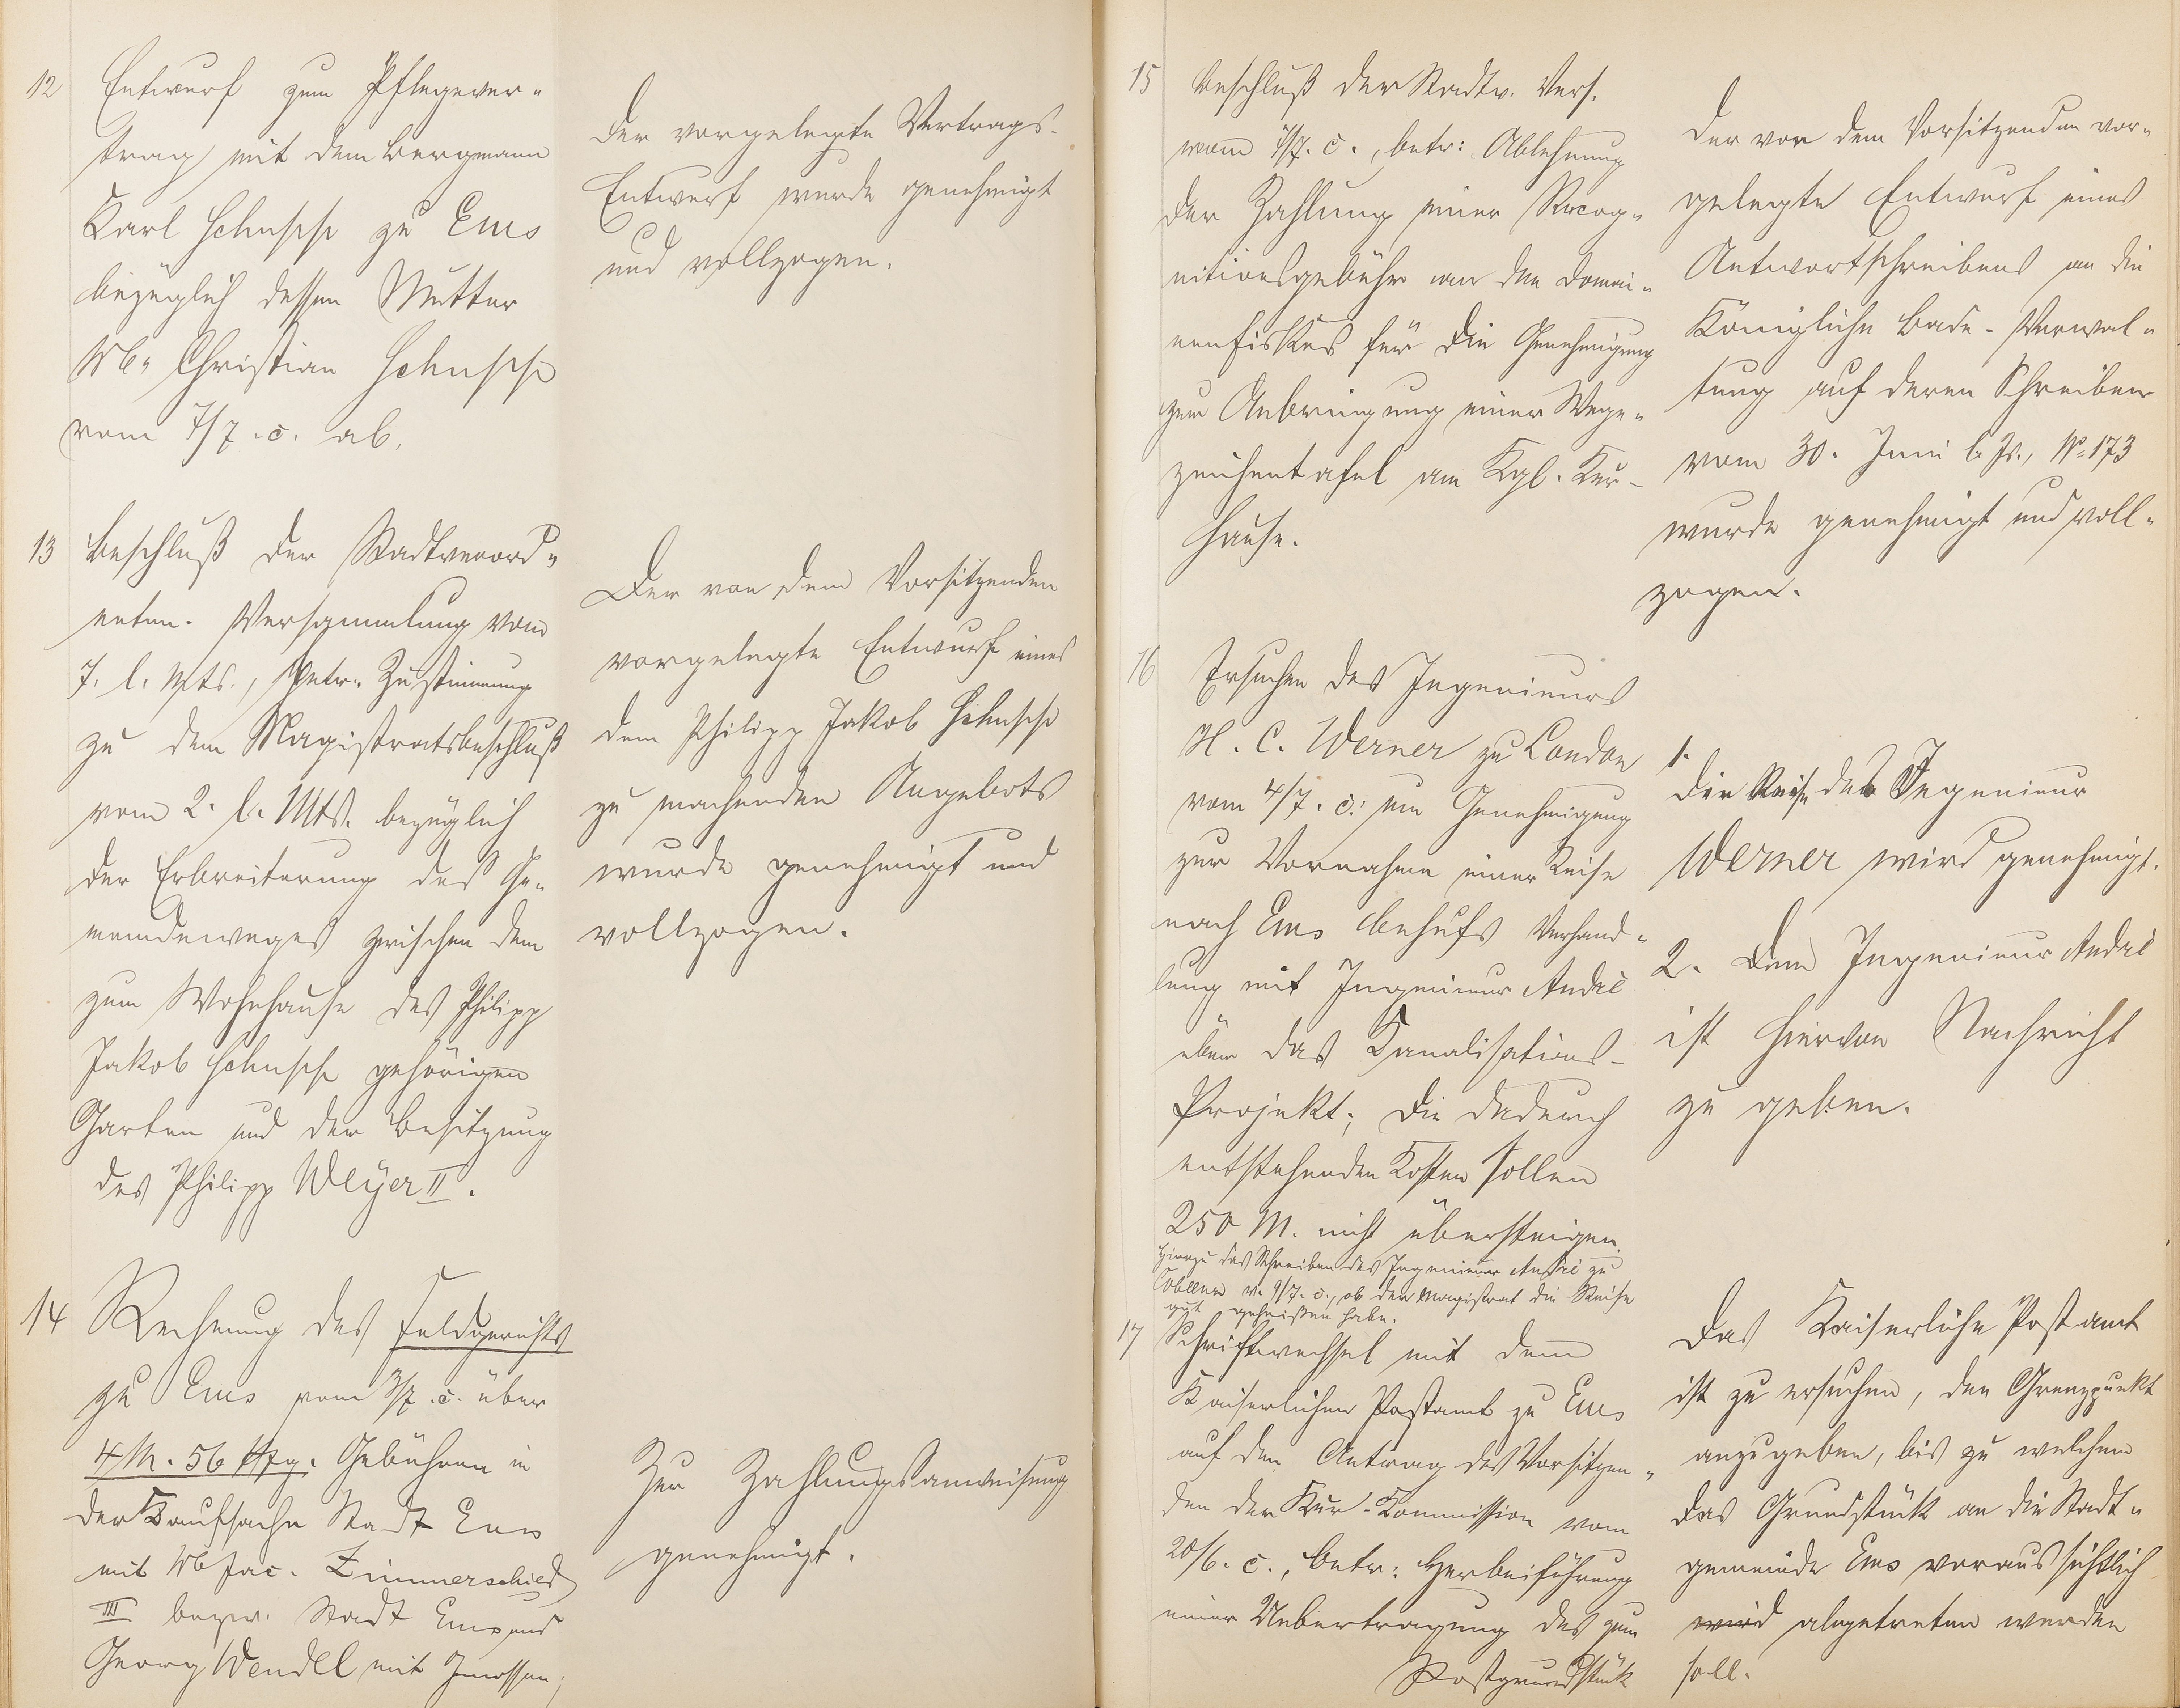 12 Entwurf zum Pflegever-
trag mit dem Bergmann
Karl Hehnsch zu Ems
bezüglich dessen Mutter
Wb. Christian Hehnsch
vom 7/7. c. ab.
Der vorgelegte Vertrags-
Entwurf wurde genehmigt
und vollzogen.
13 Beschluß der Stadtverord-
neten-Versammlung vom
7. l. Mts., betr. Zustimmung
zu dem Magistratsbeschluß
vom 2. l. Mts. bezüglich
der Erbreiterung des Ge-
meindeweges zwischen dem
zum Wohnhause des Philipp
Jakob Hehnsch gehörigen
Garten und der Besitzung
des Philipp Weyer II.
Der von dem Vorsitzenden
vorgelegte Entwurf eines
dem Philipp Jakob Hehnsch
zu machenden Angebots
wurde genehmigt und
vollzogen.
14 Rechnung des Feldgerichts
zu Ems vom 3/7. c. über
4 M. 56 Pfg. Gebühren in
der Kaufsache Stadt Ems
mit Wb Jac. Zimmerschied
III bezw. Stadt Ems und
Georg Wendel mit Genossen;
Zur Zahlungsanweisung
genehmigt.
15 Beschluß der Stadtv. Vers.
vom 7/7. c., betr: Ablehnung
der Zahlung einer Recog-
nitionsgebühr an den Domai-
nenfiskus für die Genehmigung
zum Anbringung einer Wege-
zeichentafel am Kgl. Kur-
hause.
Der von dem Vorsitzenden vor-
gelegte Entwurf eines
Antwortschreibens an die
Königliche Bade-Verwal-
tung auf deren Schreiben
vom 30. Juni l. Js., No. 173
wurde genehmigt und voll-
zogen.
16 Ersuchen des Ingenieurs
H. C. Werner zu London
vom 4/7. c. um Genehmigung
zur Vornahme einer Reise
nach Ems behufs Verhand-
lung mit Ingenieur André
über das Kanalisations-
Projekt; die dadurch
entstehenden Kosten sollen
250 M. nicht übersteigen.
Hierzu das Schreiben des Ingenieur André zu
Coblenz v. 9/7. c., ob der Magistrat die Reise
gut geheißen habe.
1.
Die Reise des Ingenieur
Werner wird genehmigt.
2. Dem Ingenieur André
ist hiervon Nachricht
zu geben.
17 Schriftwechsel mit dem
Kaiserlichen Postamt zu Ems
auf den Antrag des Vorsitzen-
den der Kur-Kommission vom
20/6. c., betr: Herbeiführung
einer Uebertragung des zum
Postgrundstück
Das Kaiserliche Postamt
ist zu ersuchen, den Grenzpunkt
anzugeben, bis zu welchem
das Grundstück an die Stadt-
gemeinde Ems voraussichtlich
wird abgetreten werden
soll.